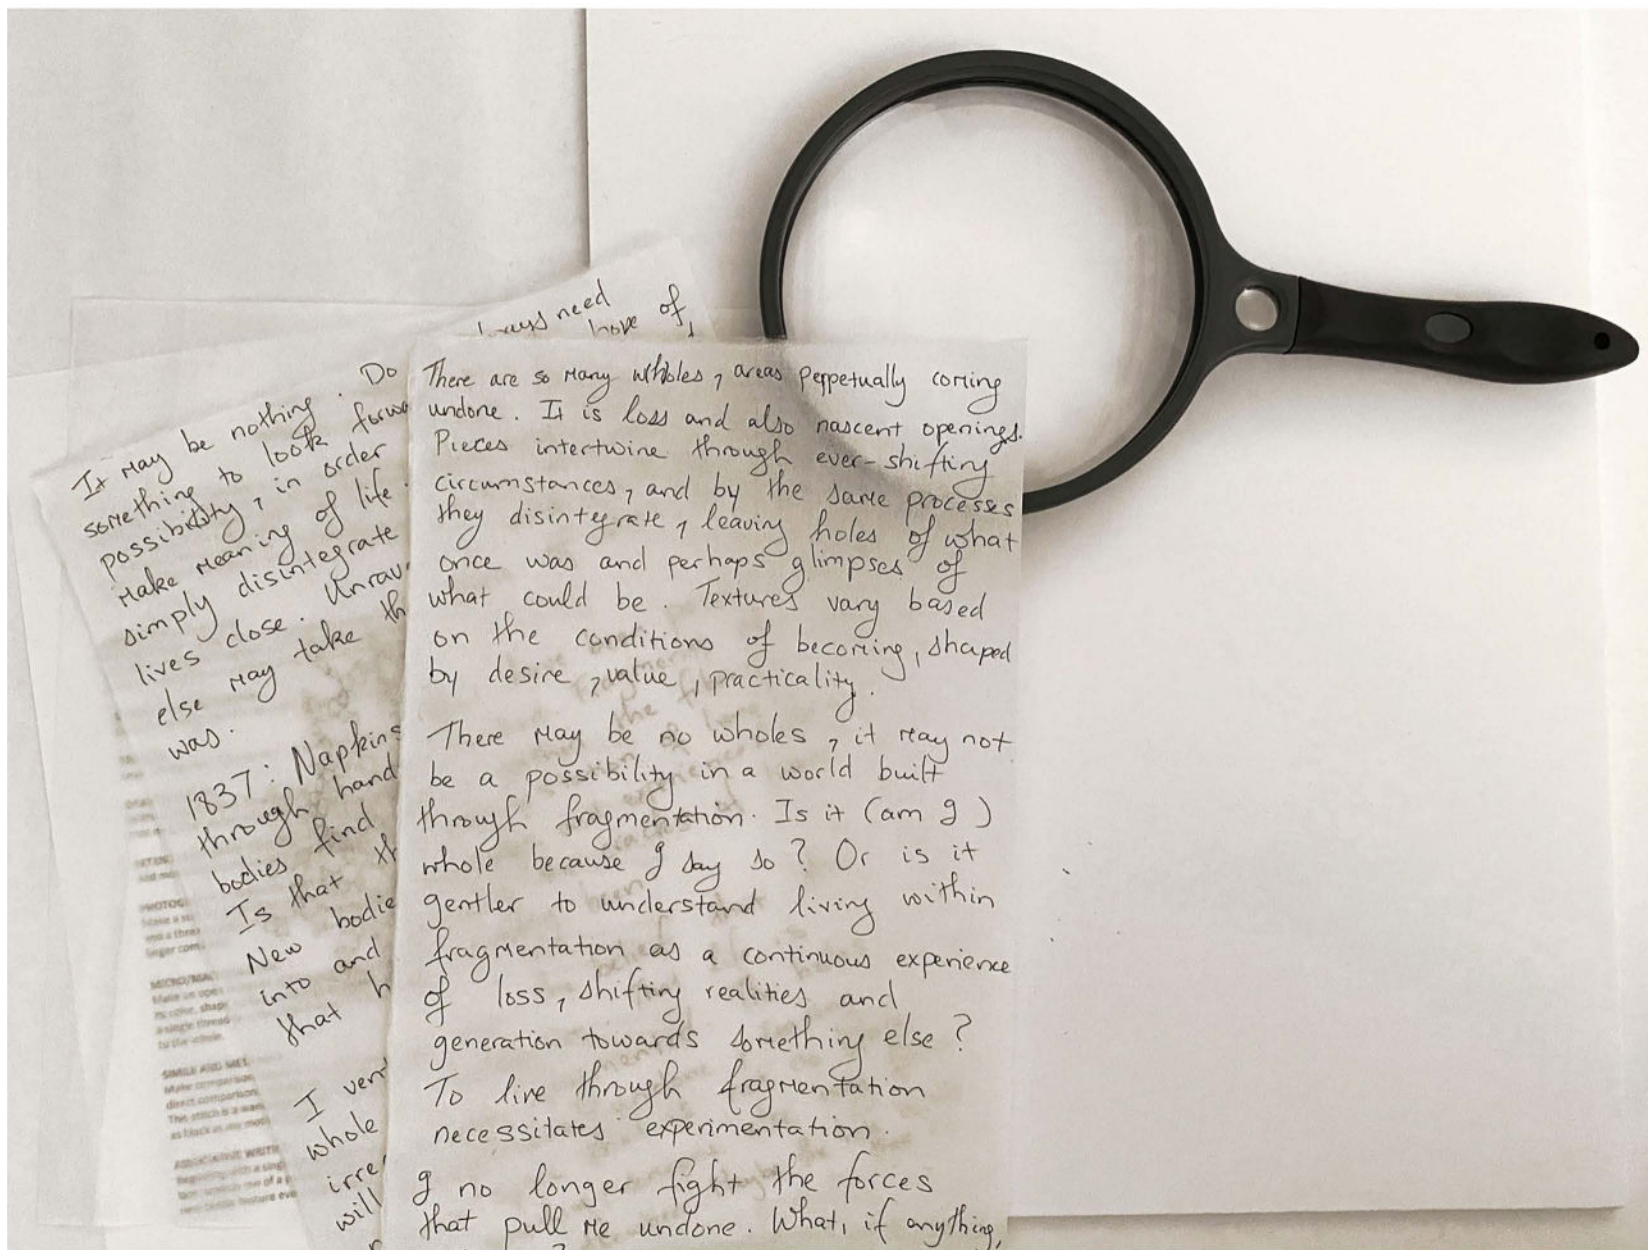 need
hope of
It may be nothing. Do
something to look forwa
possibility, in order
make meaning of life.
simply disintegrate
lives close. Unrav
else may take th
was.
1837: Napkins
through hand
bodies find
Is that th
New bodie
into and
that h
I vent
whole
irre
will
There are so many whholes, areas perpetually coming
undone. It is loss and also nascent openings.
Pieces intertwine through ever-shifting
circumstances, and by the same processes
they disintegrate, leaving holes of what
once was and perhaps glimpses of
what could be. Textures vary based
on the conditions of becoming, shaped
by desire, value, practicality.
There may be no wholes, it may not
be a possibility in a world built
through fragmentation. Is it (am I)
whole because I say so? Or is it
gentler to understand living within
fragmentation as a continuous experience
of loss, shifting realities and
generation towards something else?
To live through fragmentation
necessitates experimentation.
I no longer fight the forces
that pull me undone. What, if anything,
SIMILE AND MET
Make comparison
direct comparison
This stitch is a
ASSOCIATIVE WRITI